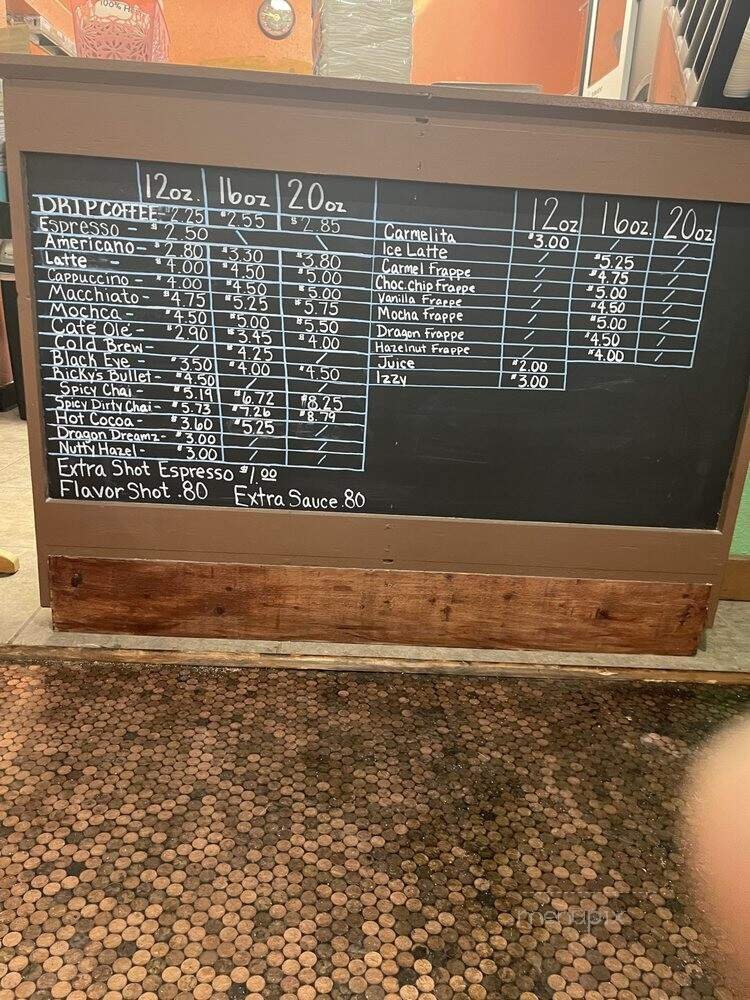 100% H
12oz. 16oz 20oz
DRIPCOFFEE- $2.25 $2.55 $2.85
Espresso - $2.50 / /
Americano- $2.80 $3.30 $3.80
Latte - $4.00 $4.50 $5.00
Cappuccino - $4.00 $4.50 $5.00
Macchiato- $4.75 $5.25 $5.75
Mochca - $4.50 $5.00 $5.50
Café Ole - $2.90 $3.45 $4.00
Cold Brew- / $4.25 /
Black Eye - $3.50 $4.00 $4.50
Rickys Bullet- $4.50 / /
Spicy Chai - $5.19 $6.72 $8.25
Spicy Dirty Chai- $5.73 $7.26 $8.79
Hot Cocoa - $3.60 $5.25 /
Dragon Dreamz- $3.00 / /
Nutty Hazel- $3.00 / /
Extra Shot Espresso $1.00
Flavor Shot .80 Extra Sauce .80
12oz 16oz 20oz
Carmelita $3.00 / /
Ice Latte / $5.25 /
Carmel Frappe / $4.75 /
Choc.chip Frappe / $5.00 /
Vanilla Frappe / $4.50 /
Mocha Frappe / $5.00 /
Dragon Frappe / $4.50 /
Hazelnut Frappe / $4.00 /
Juice $2.00
Izzy $3.00
menupix